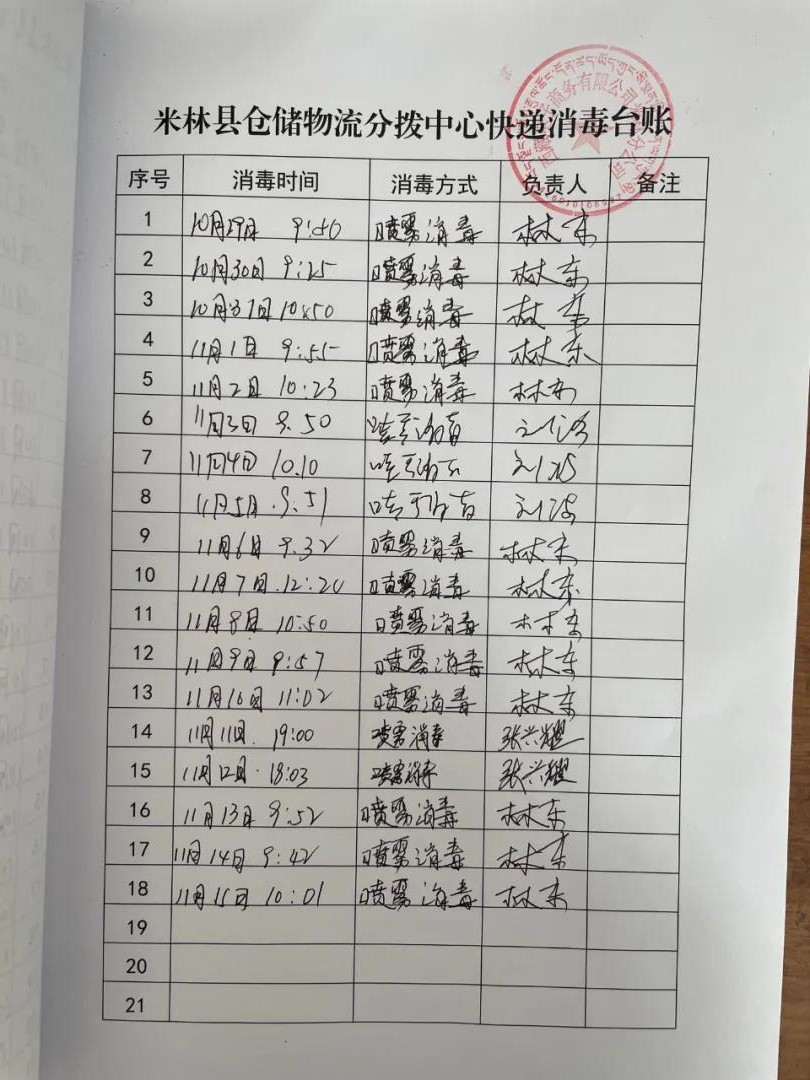 米林县仓储物流分拨中心快递消毒台账
商务有限公司
序号 消毒时间 消毒方式 负责人 备注
1 10月29日 9:40 喷雾消毒 林东
2 10月30日 9:25 喷雾消毒 林东
3 10月31日 10:50 喷雾消毒 林东
4 11月1日 9:55 喷雾消毒 林东
5 11月2日 10:23 喷雾消毒 林东
6 11月3日 9.50 喷雾消毒
7 11月4日 10.10 喷雾消毒
8 11月5日.9:51 喷雾消毒
9 11月6日 9.32 喷雾消毒 林东
10 11月7日.12:20 喷雾消毒 林东
11 11月8日 10:50 喷雾消毒 林东
12 11月9日 9:57 喷雾消毒 林东
13 11月10日 11:02 喷雾消毒 林东
14 11月11日. 19:00 喷雾消毒 张兴耀
15 11月12日.18:03 喷雾消毒 张兴耀
16 11月13日 9:52 喷雾消毒 林东
17 11月14日 9:42 喷雾消毒 林东
18 11月15日 10:01 喷雾消毒 林东
19
20
21